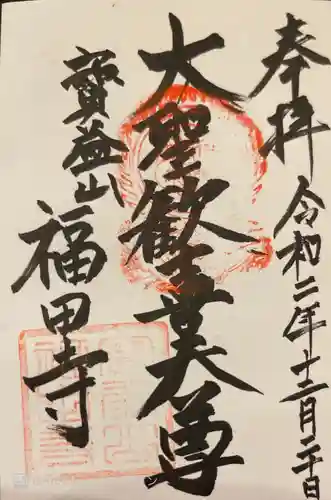 奉拝
令和二年十二月二十日
大聖歓喜天尊
寳益山
福田寺